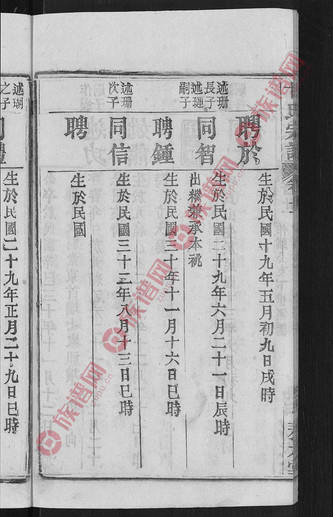 聘於
生於民國十九年五月初九日戌時
述珊
長子
述瑆
嗣子
同智
生於民國二十九年六月二十一日辰時
出繼兼承本祧
聘鍾
生於民國三十年十一月十六日巳時
述珊
次子
同信
生於民國三十二年八月十三日巳時
聘
生於民國
述瑚
之子
同禮
生於民國二十九年正月二十九日巳時
族谱网